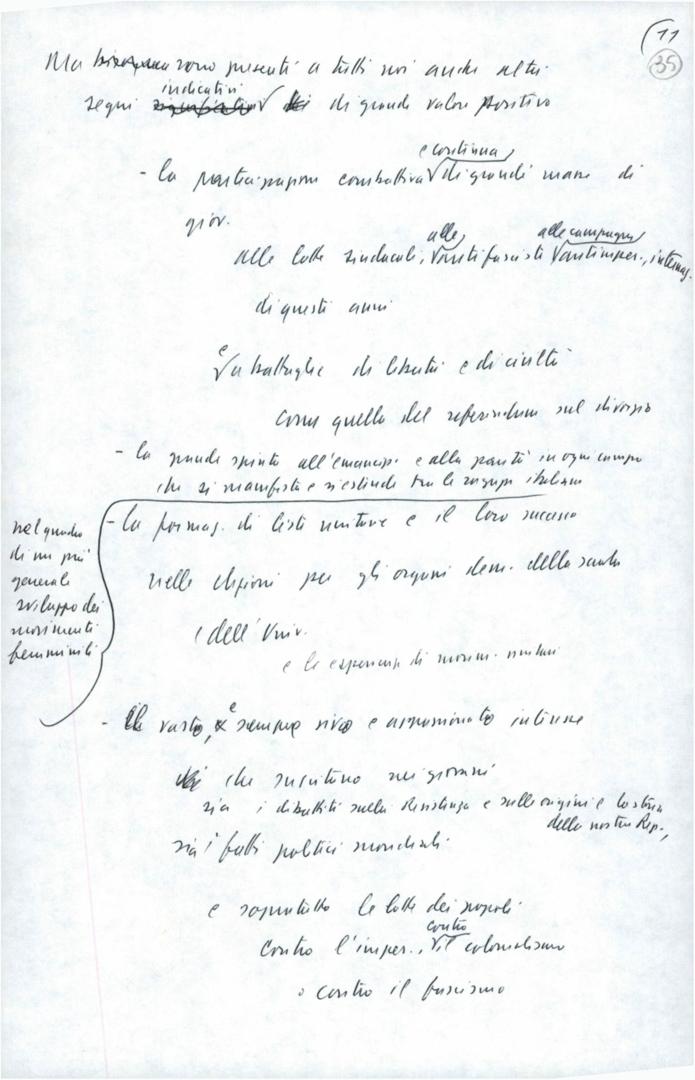 11
35
Ma sono presenti a tutti noi anche altri
indicativi
segni di grande valore positivo
e continua
- la partecipazione combattiva di grandi masse di
giov.
alle alle campagne
alle lotte sindacali, antifasciste antimper., internaz.
di questi anni
e a battaglie di libertà e di civiltà
come quella del referendum sul divorzio
- la grande spinta all'emancip. e alla parità in ogni campo
che si manifesta e si estende tra le ragazze italiane
nel quadro
di un più
generale
sviluppo dei
movimenti
femminili
- la formaz. di liste unitarie e il loro successo
nelle elezioni per gli organi dem. della scuola
e dell'Univ.
e le esperienze di movim. unitari
- vasto, e sempre vivo e appassionato interesse
che suscitano nei giovani
sia i dibattiti sulla Resistenza e sulle origini e la storia
della nostra Rep.,
sia i fatti politici mondiali
e soprattutto le lotte dei popoli
contro
contro l'imper., il colonialismo
e contro il fascismo